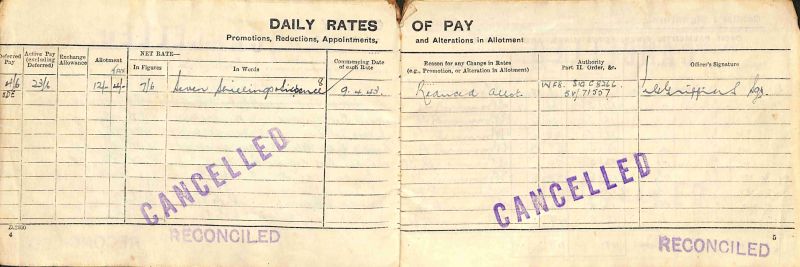 DAILY RATES OF PAY
Promotions, Reductions, Appointments, and Alterations in Allotment
Deferred Pay
Active Pay (excluding Deferred)
Exchange Allowance
Allotment
NET RATE—
In Figures
In Words
Commencing Date of such Rate
Reason for any Change in Rates (e.g., Promotion, or Alteration in Allotment)
Authority Part II. Order, &c.
Officer's Signature
23/6 12/- 7/6 Seven Shillings & Sixpence 9.4.43. Reduced Allot.
CANCELLED
CANCELLED
RECONCILED
RECONCILED
4
5